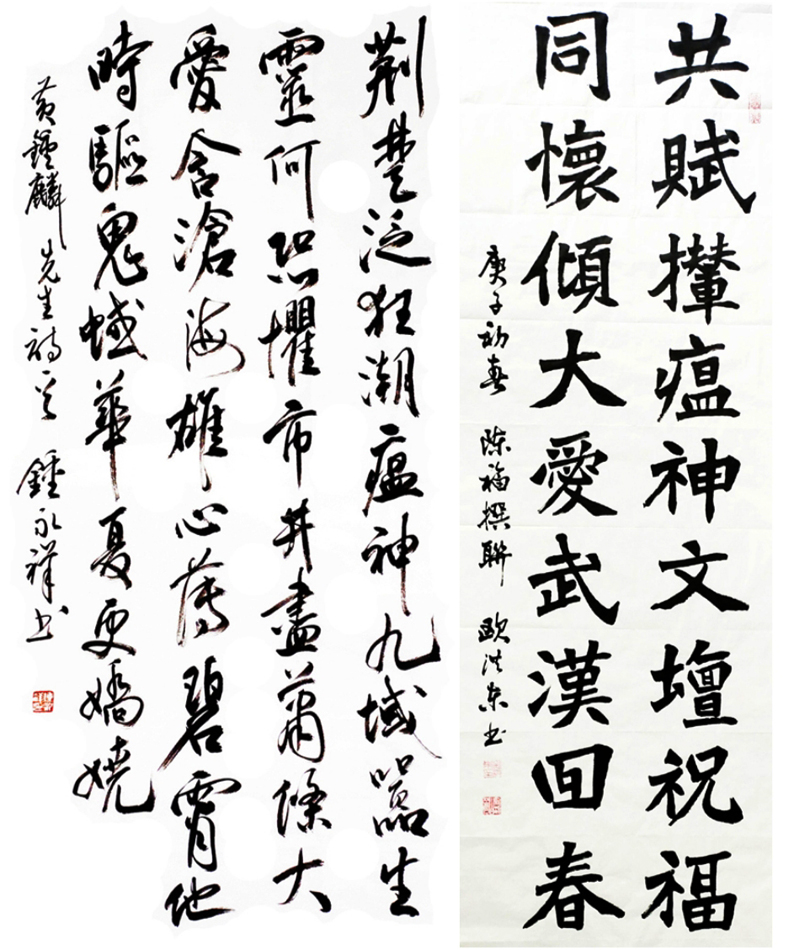 共賦攆瘟神文壇祝福
同懷傾大愛武漢回春
庚子初春 陈福撰聯 欧洪东书
荆楚泛狂潮瘟神九域囂生
靈何恐懼市井盡蕭條大
愛含滄海雄心薄碧霄他
時驅鬼蜮華夏更嬌嬈
黄鍾麟先生诗一首 鍾永祥书